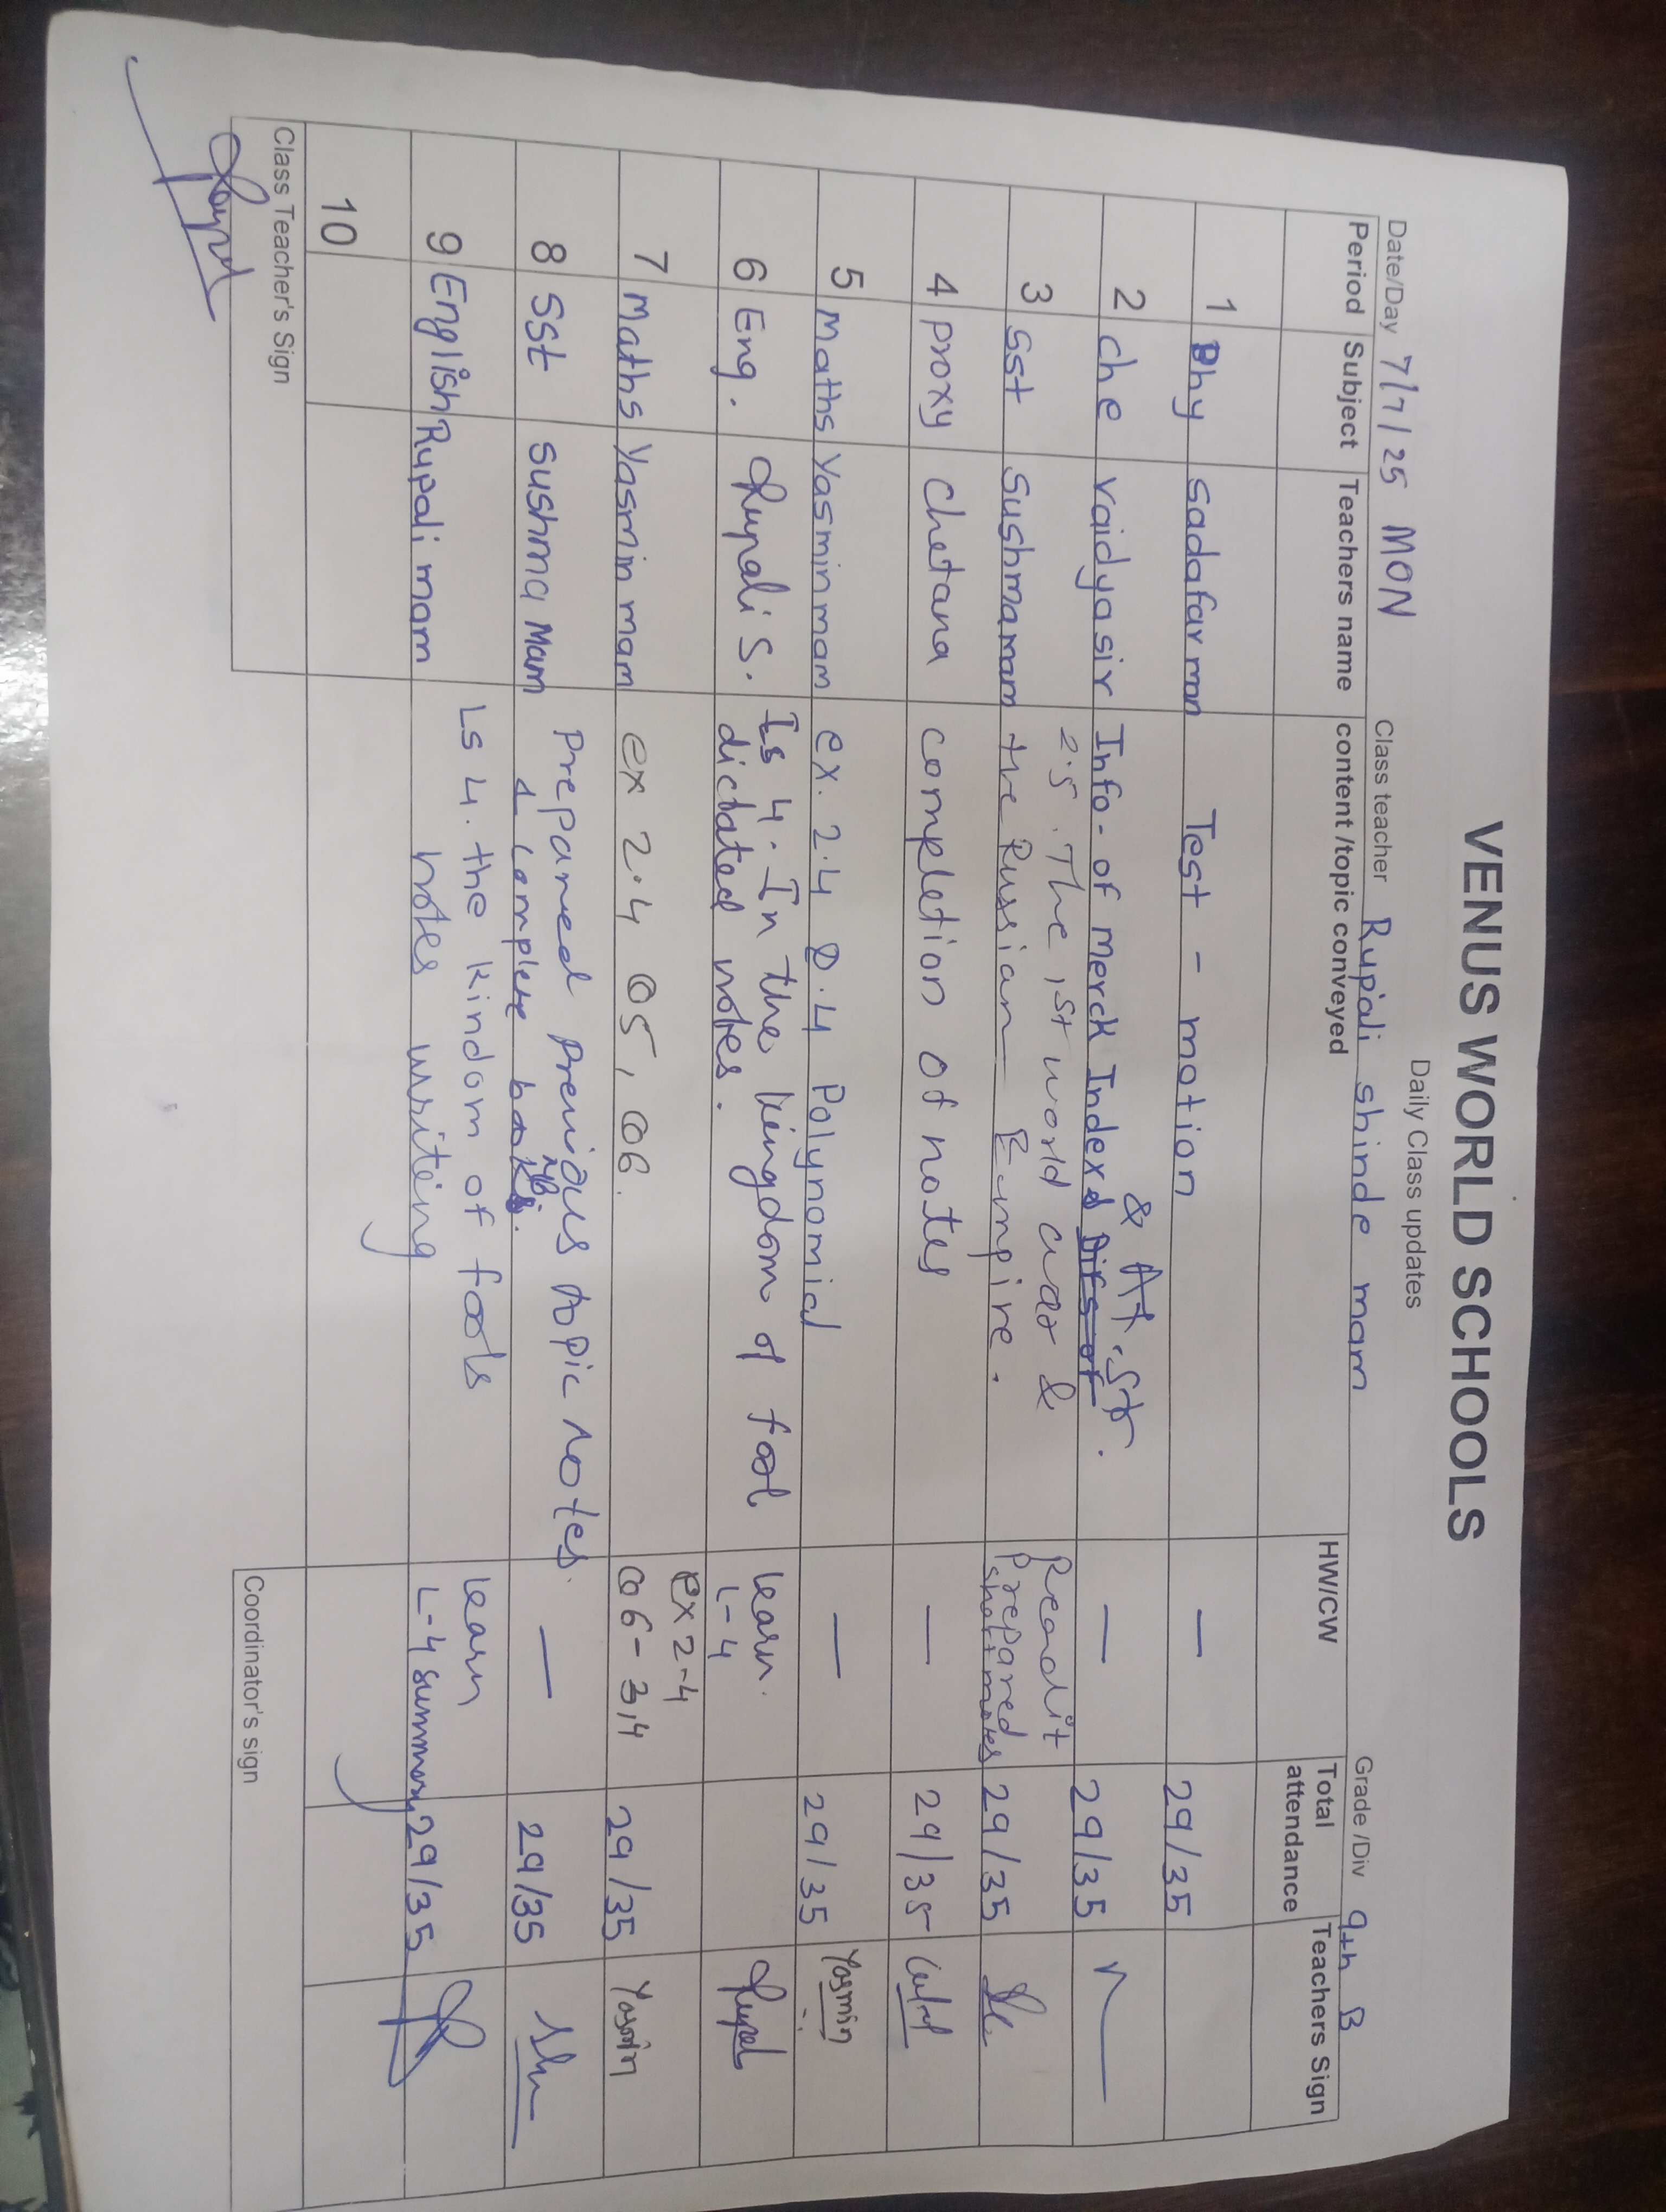 VENUS WORLD SCHOOLS
Daily Class updates
Date/Day 7/7/25 MON Class teacher Rupali shinde mam Grade /Div 9th B
Period Subject Teachers name content /topic conveyed HW/CW Total attendance Teachers Sign
1 Phy sadafar mam Test - motion — 29/35
2 che vaidya sir Info- of Merck Index & At. Str. — 29/35
3 sst Sushma mam 2.5. The 1st world war & Readit 29/35
the Russian Empire. Prepared
short notes
4 proxy chetana completion of notes — 29/35
5 Maths Yasmin mam ex. 2.4 Q.4 Polynomial — 29/35 Yasmin
6 Eng. Rupali S. Ls 4. In the kingdom of fool learn. Rupal
dictated notes. L-4
7 Maths Yasmin mam ex 2.4 Q5, Q6. ex 2-4 29/35 Yasmin
Q6-3,4
8 SSt sushma Mam Prepared previous topic notes. — 29/35
& complete books.
9 English Rupali mam Ls 4. the kindom of fools learn 29/35
notes writing L-4 summary
10
Class Teacher's Sign Coordinator's sign